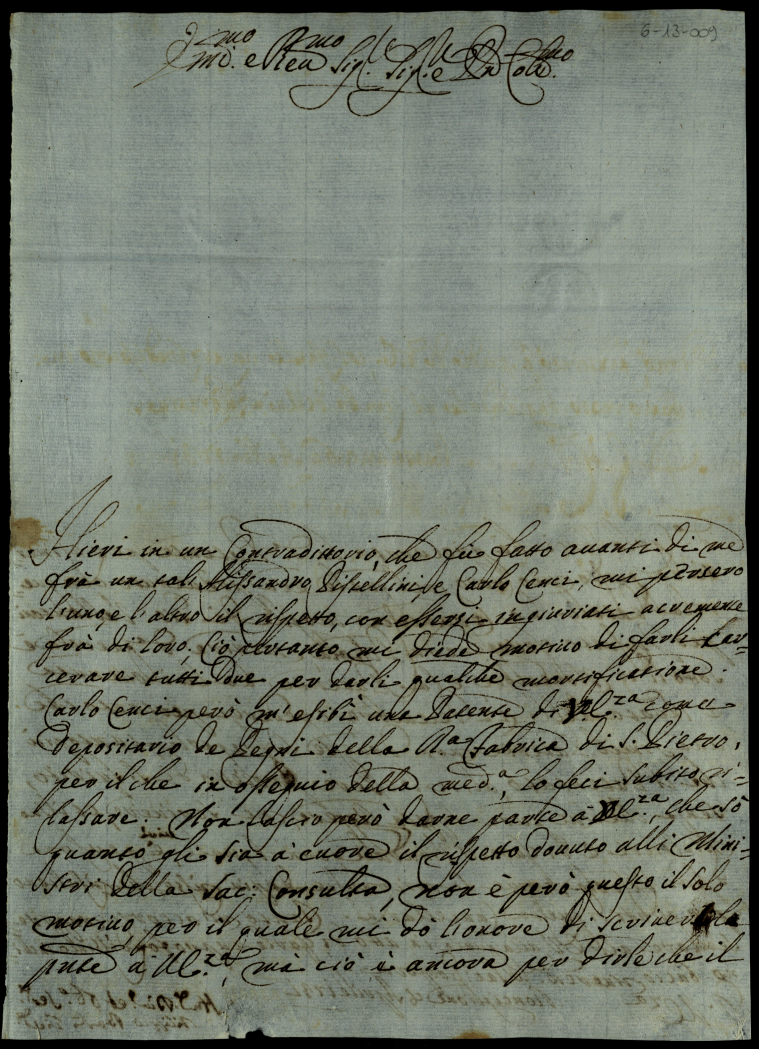 6-13-009
Ill.mo e Rev.mo Sig.r Sig.r e P.ron Col.mo
Hieri in un Contradittorio, che fù fatto auanti di me
frà un tal Alissandro Pistellini, e Carlo Cenci, mi persero
l'uno, e l'altro il rispetto, con essersi ingiuriati acremente
frà di loro. Ciò pertanto mi diede motiuo di farli Car=
cerare tutti due per darli qualche mortificatione.
Carlo Cenci però m'esibì una Patente di VS.Ill.za come
Depositario de Pegni della R.a Fabrica di S. Pietro,
per il che in ossequio della med.a, lo feci subito ri=
lassare. Non lascio però darne parte à VS.Ill.za, che sò
quanto gli sia à cuore il rispetto douuto alli Mini=
stri della Sac. Consulta, non è però questo il solo
motiuo, per il quale mi dò l'onore di scriuere la
pnte à VS.Ill.za, mà ciò è ancora per dirle che il